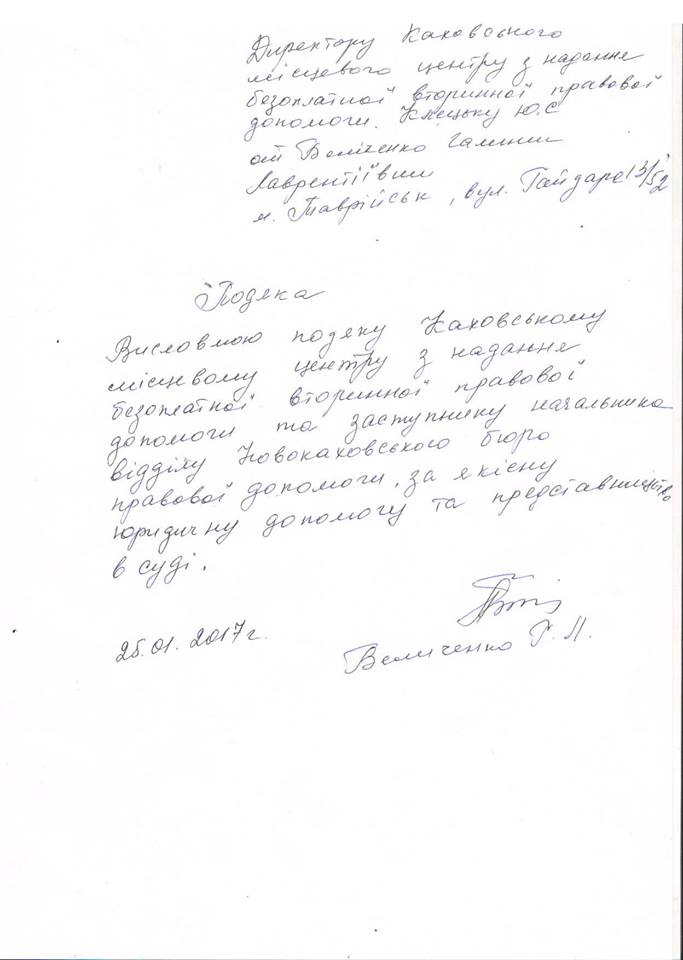 Директору Каховського
місцевого центру з надання
безоплатної вторинної правової
допомоги. Клецьку Ю.С
от Веліченко Галини
Лаврентіївни
м. Таврійськ, вул. Гайдара 13/52
Подяка
Висловлюю подяку Каховському
місцевому центру з надання
безоплатної вторинної правової
допомоги та заступнику начальника
відділу Новокаховського бюро
правової допомоги, за якісну
юридичну допомогу та представництво
в суді.
25.01.2017г.
Величенко Г.Л.